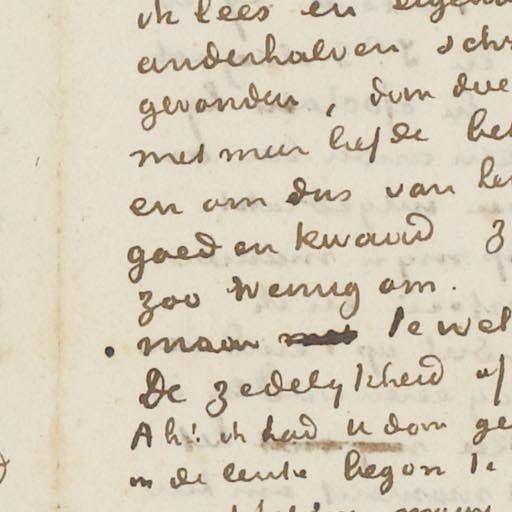 ik lees en
anderhalven schr
gevonden, dom doe
met meer liefde het
en om dus van het
goed en kwaad z
zoo weinig om.
maar te wel
De zedelykheid of
Ah! ik had u dom ge
in de lente begon te